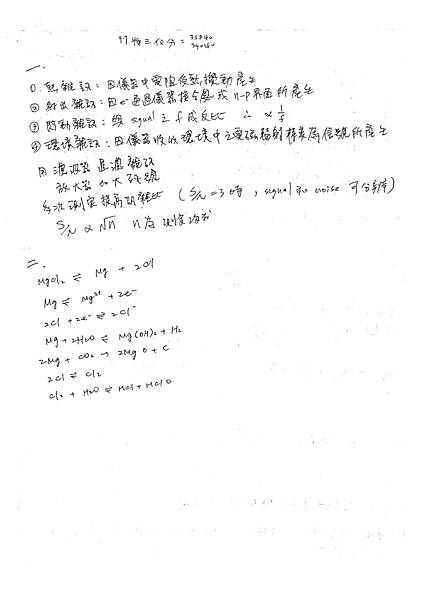 97 特三仪分 = 33840
34040
一.
① 熱雜訊：因儀器中電阻受熱擾動產生
② 射出雜訊：因 e⁻ 通過儀器接合處或 n-p 界面所產生
③ 閃動雜訊：與 signal 之 f 成反比 ∴ ∝ 1/f
④ 環境雜訊：因儀器收收環境中之電磁輻射轉換為信號所產生
用 濾波器 過濾雜訊
放大器 加大訊號
多次測定提高訊雜比 ( S/N = 3 時, signal 和 noise 可分辨 )
S/N ∝ √n n 為 測定
二.
MgCl₂ ⇌ Mg + 2Cl
Mg ⇌ Mg²⁺ + 2e⁻
2Cl + 2e⁻ ⇌ 2Cl⁻
Mg + 2H₂O ⇌ Mg(OH)₂ + H₂
2Mg + CO₂ → 2MgO + C
2Cl ⇌ Cl₂
Cl₂ + H₂O ⇌ HCl + HClO